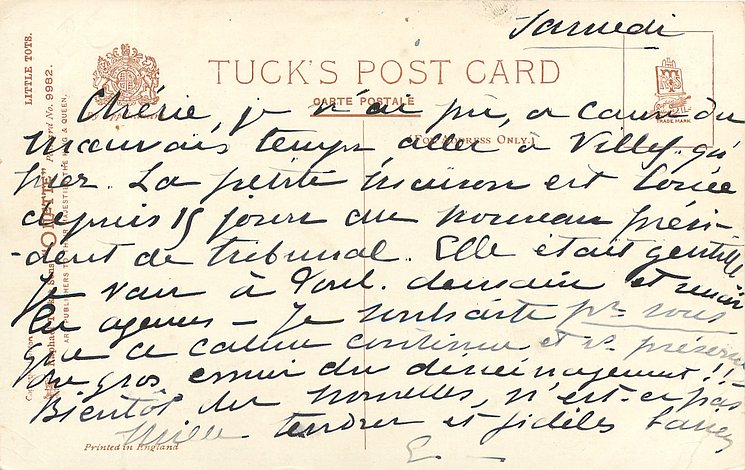 Samedi
TUCK'S POST CARD
CARTE POSTALE
(FOR ADDRESS ONLY.)
TRADE MARK
LITTLE TOTS.
"OILETTE" Postcard No. 9982.
Raphael Tuck & Sons
ART PUBLISHERS TO THEIR MAJESTIES THE KING & QUEEN.
Chérie, je n'ai pu, a cause du
mauvais temps aller à qu'
hier. La petite maison est louée
depuis 15 jours au nouveau prési-
-dent de tribunal. Elle était gentille
Je vais à demain et
les agences – Je souhaite pr vous
que ce calme continue et vs préserve
du gros ennui du déménagement!!
Bientôt des nouvelles, n'est-ce pas
Mille tendres et fidèles
E. –
Printed in England